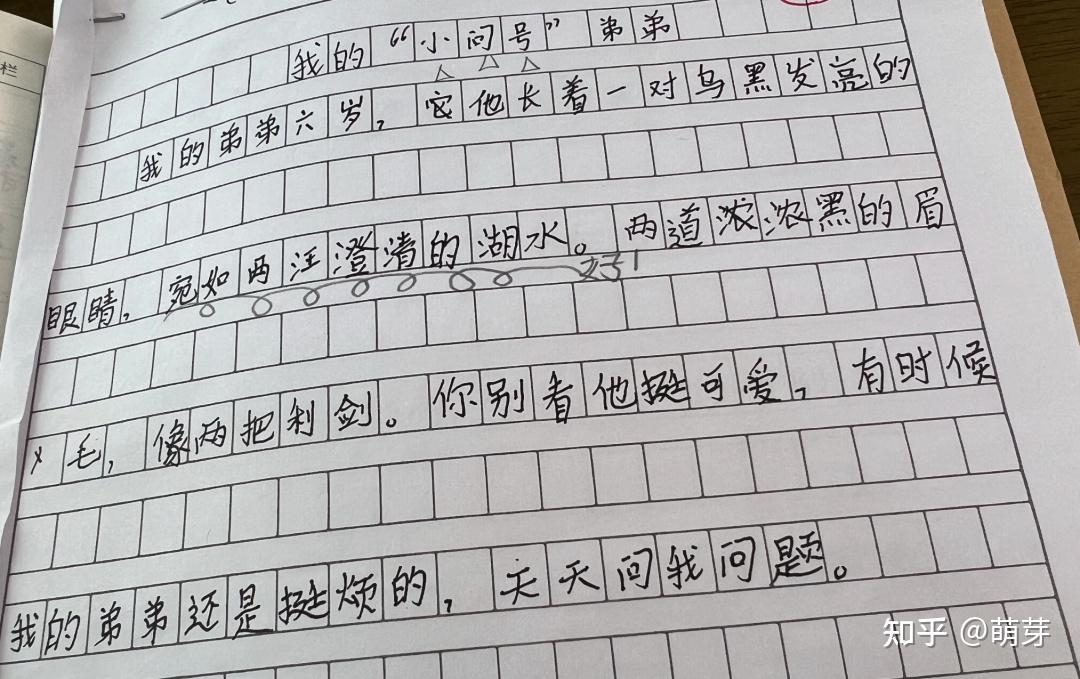 我的“小问号”弟弟
我的弟弟六岁，它他长着一对乌黑发亮的
眼睛，宛如两汪澄清的湖水。两道浓浓黑的眉
毛，像两把利剑。你别看他挺可爱，有时候
我的弟弟还是挺烦的，天天问我问题。
知乎 @萌芽